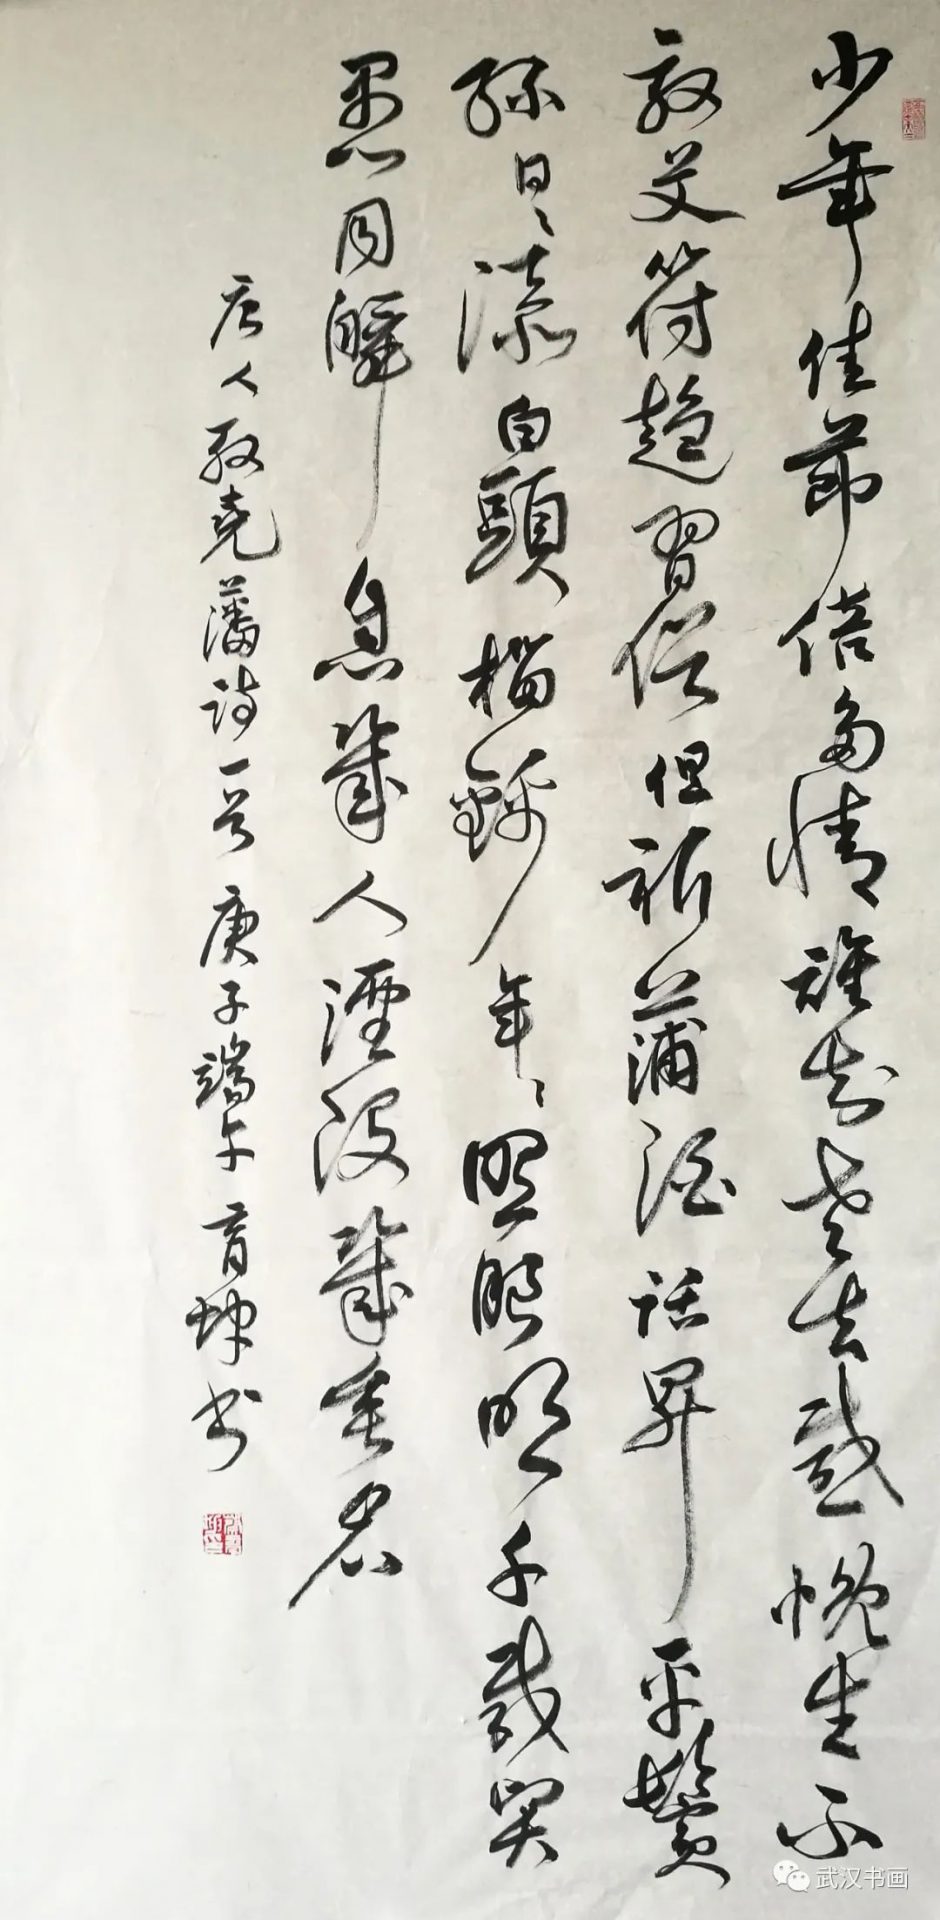 少年佳節倍多情誰知老去感慨生不
效艾符趨習俗但祈蒲酒話昇平鬢
絲日〻添白頭榴錦年〻照眼明千載賢
愚同瞬息幾人湮没幾垂名
唐人殷堯藩詩一首庚子端午育坤书
武汉书画